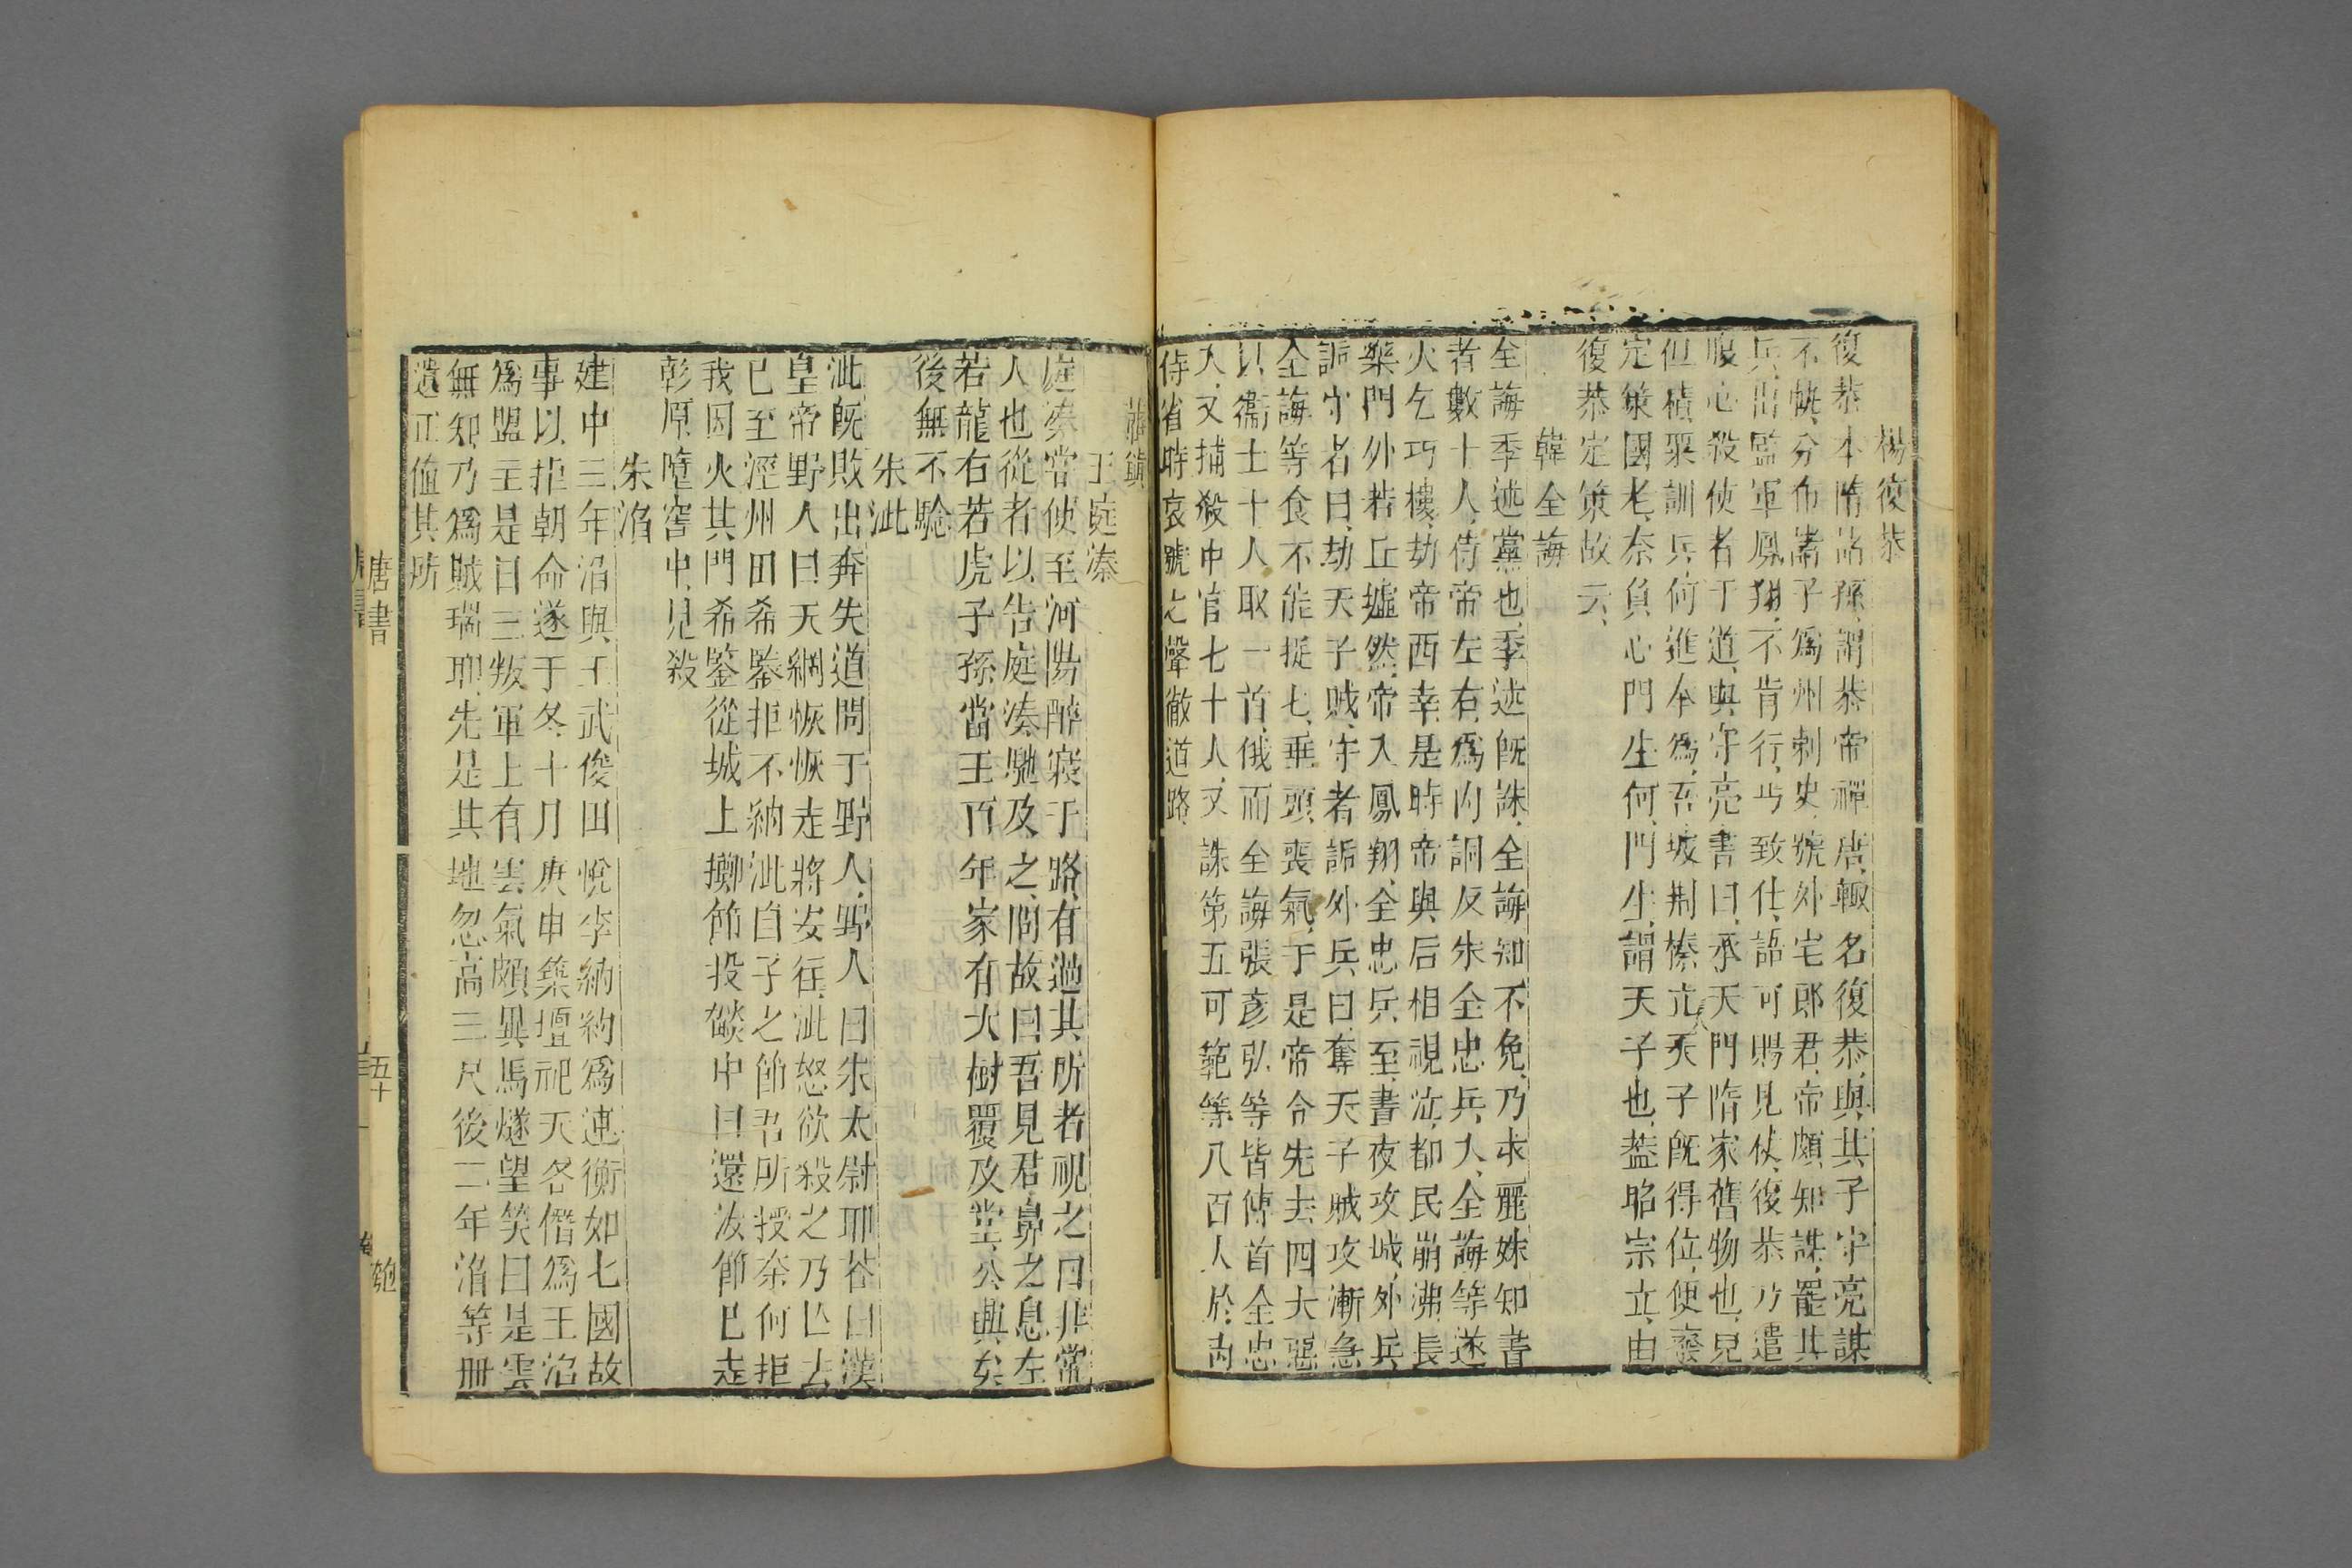 楊復恭
復恭本隋諸孫謂恭帝禪唐輙名復恭與其子守亮謀
不軌分布諸子為州刺史號外宅郎君帝頗知謀罷其
兵出監軍鳳翔不肯行丐致仕詔可賜見仗復恭乃遣
腹心殺使者于道與守亮書曰承天門隋家舊物也兒
但積粟訓兵何進奉為吾披荆榛立天子既得位便廢
定策國老奈負心門生何門生謂天子也蓋昭宗立由
復恭定策故云
韓全誨
全誨季述黨也季述既誅全誨知不免乃求麗姝知書
者數十人侍帝左右為内詗反朱全忠兵入全誨等遂
火乞巧樓劫帝西幸是時帝與后相視泣都民崩沸長
樂門外若丘墟然帝入鳳翔全忠兵至晝夜攻城外兵
詬守者曰劫天子賊守者詬外兵曰奪天子賊攻漸急
全誨等食不能捉匕垂頭喪氣于是帝令先去四大惡
以衛士十人取一首俄而全誨張彥弘等皆傳首全忠
又捕殺中官七十人又誅第五可範等八百人於内
侍省時哀號之聲徹道路
藩鎮
王庭湊
庭湊嘗使至河陽醉寢于路有過其所者視之曰非常
人也從者以告庭湊馳及之問故曰吾見君鼻之息左
若龍右若虎子孫當王百年家有大樹覆及堂公興矣
後無不驗
朱泚
泚既敗出奔失道問于野人野人曰朱太尉耶荅曰漢
皇帝野人曰天網恢恢走將安往泚怒欲殺之乃亾去
已至涇州田希鑒拒不納泚曰予之節君所授奈何拒
我因火其門希鑒從城上擲節投燄中曰還汝節已走
彭原墮窖中見殺
朱滔
建中三年滔與王武俊田悅李納約為連衡如七國故
事以拒朝命遂于冬十月庚申築壇祀天各僭為王滔
為盟主是日三叛軍上有雲氣頗異馬燧望笑曰是雲
無知乃為賊瑞耶先是其地忽高三尺後二年滔等冊
遺正值其所
唐書
五十